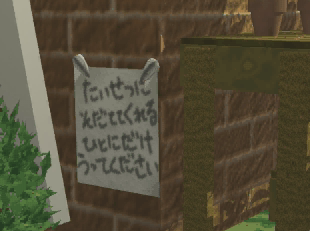 たいせつに
そだててくれる
ひとにだけ
うってください